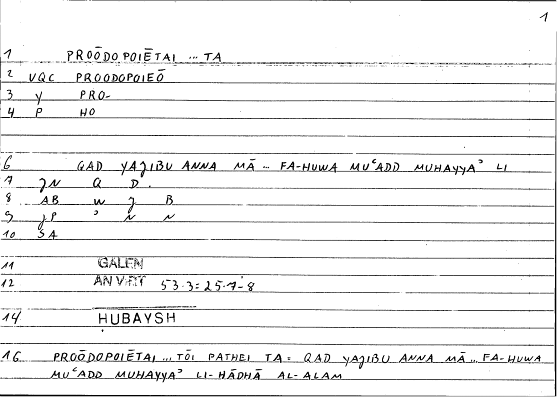 1
1 PROŌDOPOIĒTAI ... TA
2 VQC PROODOPOIEŌ
3 Y PRO-
4 P HO
6 QAD YAJIBU ANNA MĀ .. FA-HUWA MUʿADD MUHAYYAʾ LI
7 JN Q D.
8 AB W J B
9 JP ʾ N N
10 SA
11 GALEN
12 AN VIRT 53.3 = 25.7-8
14 HUBAYSH
16 PROŌDOPOIĒTAI ... TŌI PATHEI TA = QAD YAJIBU ANNA MĀ .. FA-HUWA
MUʿADD MUHAYYAʾ LI-HĀDHĀ AL-ALAM